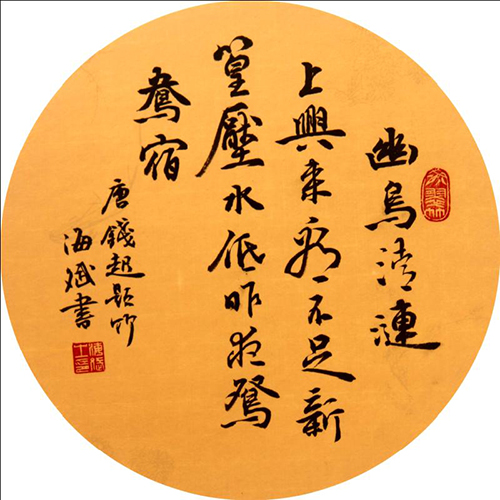 幽鳥清漣
上興来看不足新
篁壓水低昨夜鴛
鴦宿
唐錢起題竹
海斌書